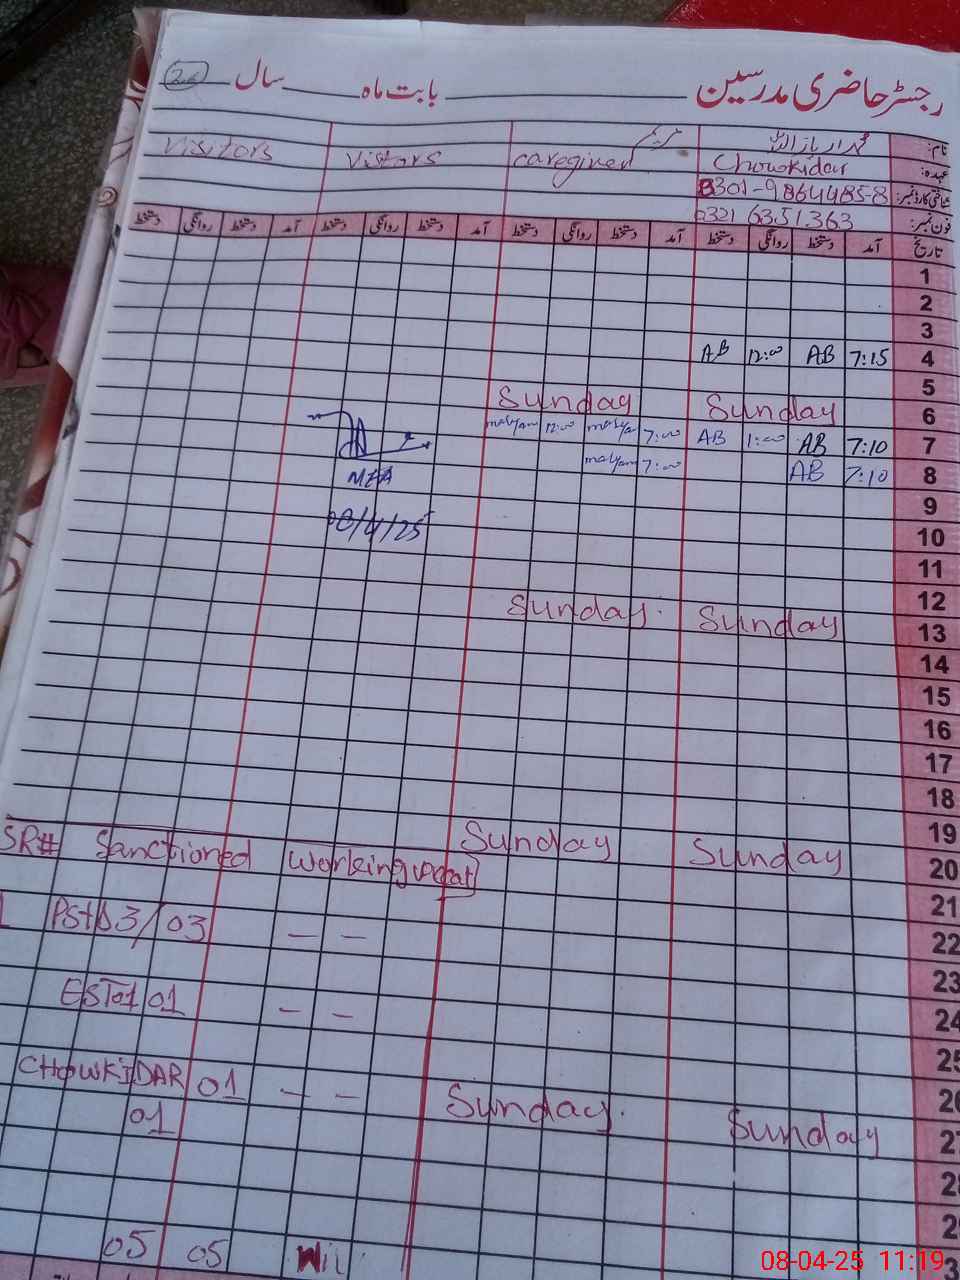 رجسٹر حاضری مدرسین ________ بابت ماہ ________ سال ________
نام:
Visitors
Vistors
caregiver
مریم
Chowkidar
عہدہ:
شناختی کارڈ نمبر:
فون نمبر: 0321 6351363
تاریخ آمد دستخط روانگی دستخط آمد دستخط روانگی دستخط آمد دستخط روانگی دستخط آمد دستخط روانگی دستخط
1
2
3
4 7:15 AB 12:00 AB
5
6 Sunday Sunday
7 7:10 AB 1:00 AB 7:00 maryam 12:00 maryam
8 7:10 AB 7:00 maryam
MEA
08/4/25
9
10
11
12
13 Sunday Sunday
14
15
16
17
18
19
20 Sunday Sunday
SR# Sanctioned working
21
22
1 PST 03/03 — —
23
24
EST 01 01 — —
25
26
CHOWKIDAR 01 — —
01
27 Sunday Sunday
28
05 05 Nil
08-04-25 11:19